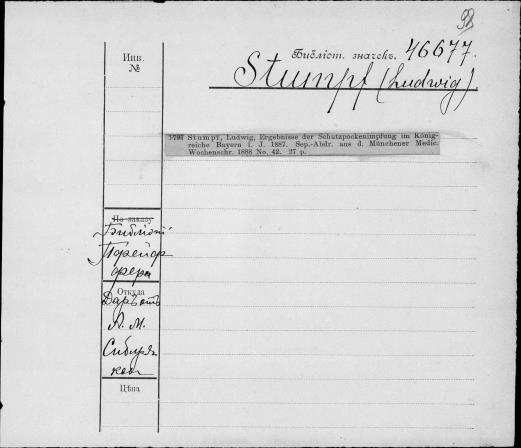 98
Библіот. значекъ. 46677.
Инв.
№
Stumpf (Ludwig)
Stumpf, Ludwig, Ergebnisse der Schutzpockenimpfung im König-
reiche Bayern i. J. 1887. Sep.-Abdr. aus d. Münchener Medic.
Wochenschr. 1888 No. 42. 27 p.
По заказу
Библіот
Порейор
фера
Откуда
Даръ отъ
А. М.
Сибиря
кова
Цѣна